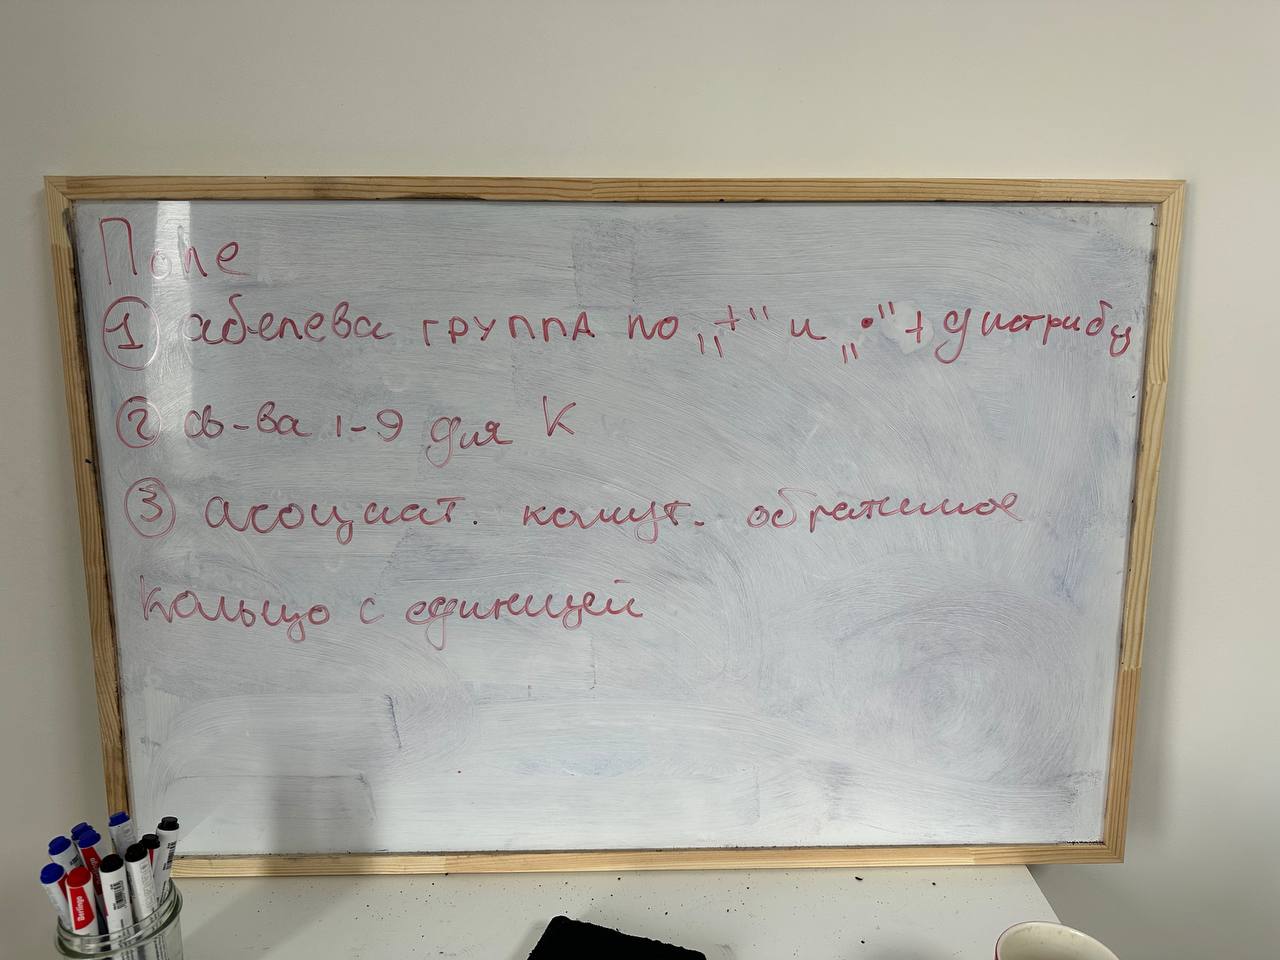 Поле
① абелева группа по „+" и „•" + дистрибу
② св-ва 1-9 для K
③ асоциат. комут. обратимое
кольцо с единицей
Berlingo